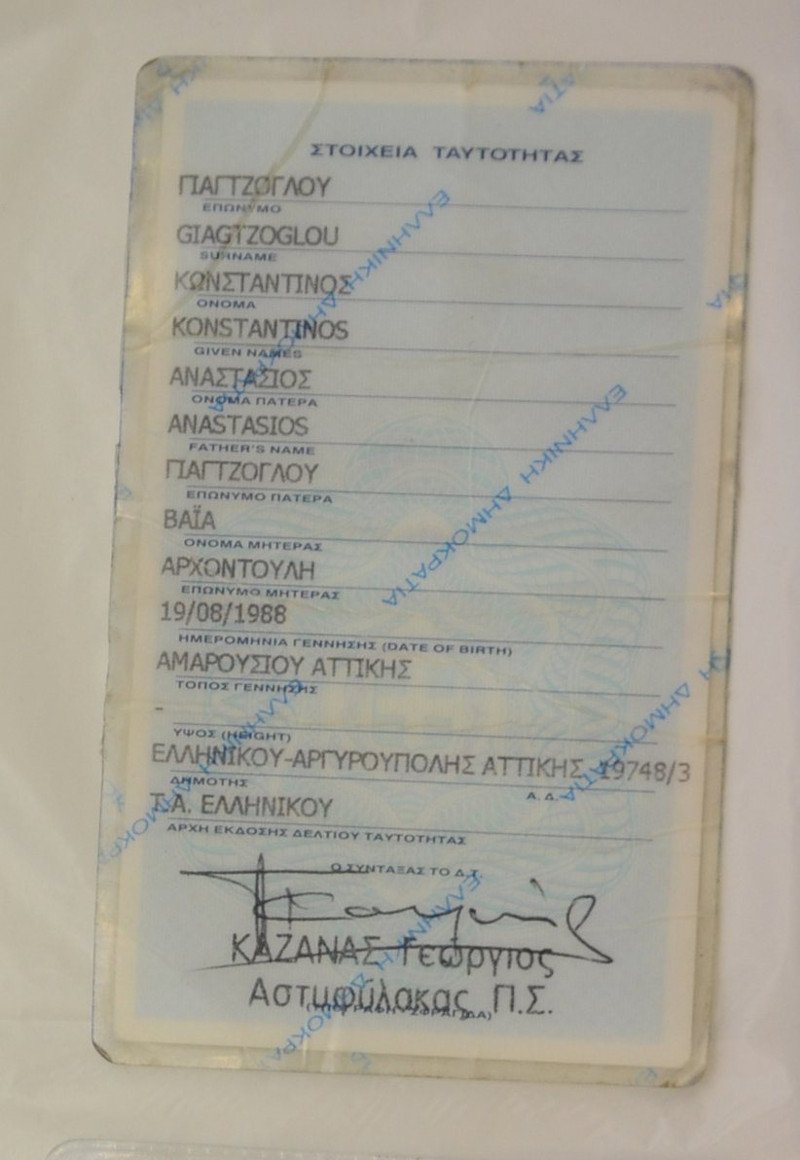 ΣΤΟΙΧΕΙΑ ΤΑΥΤΟΤΗΤΑΣ
ΓΙΑΓΤΖΟΓΛΟΥ
ΕΠΩΝΥΜΟ
GIAGTZOGLOU
SURNAME
ΚΩΝΣΤΑΝΤΙΝΟΣ
ΟΝΟΜΑ
KONSTANTINOS
GIVEN NAMES
ΑΝΑΣΤΑΣΙΟΣ
ΟΝΟΜΑ ΠΑΤΕΡΑ
ANASTASIOS
FATHER'S NAME
ΓΙΑΓΤΖΟΓΛΟΥ
ΕΠΩΝΥΜΟ ΠΑΤΕΡΑ
ΒΑΪΑ
ΟΝΟΜΑ ΜΗΤΕΡΑΣ
ΑΡΧΟΝΤΟΥΛΗ
ΕΠΩΝΥΜΟ ΜΗΤΕΡΑΣ
19/08/1988
ΗΜΕΡΟΜΗΝΙΑ ΓΕΝΝΗΣΗΣ (DATE OF BIRTH)
ΑΜΑΡΟΥΣΙΟΥ ΑΤΤΙΚΗΣ
ΤΟΠΟΣ ΓΕΝΝΗΣΗΣ
-
ΥΨΟΣ (HEIGHT)
ΕΛΛΗΝΙΚΟΥ-ΑΡΓΥΡΟΥΠΟΛΗΣ ΑΤΤΙΚΗΣ 19748/3
ΔΗΜΟΤΗΣ Α.Δ.
Τ.Α. ΕΛΛΗΝΙΚΟΥ
ΑΡΧΗ ΕΚΔΟΣΗΣ ΔΕΛΤΙΟΥ ΤΑΥΤΟΤΗΤΑΣ
Ο ΣΥΝΤΑΞΑΣ ΤΟ Δ.Τ.
ΚΑΖΑΝΑΣ Γεώργιος
Αστυφύλακας Π.Σ.
ΕΛΛΗΝΙΚΗ ΔΗΜΟΚΡΑΤΙΑ
ΕΛΛΗΝΙΚΗ ΔΗΜΟΚΡΑΤΙΑ
ΕΛΛΗΝΙΚΗ ΔΗΜΟΚΡΑΤΙΑ
ΕΛΛΗΝΙΚΗ ΔΗΜΟΚΡΑΤΙΑ